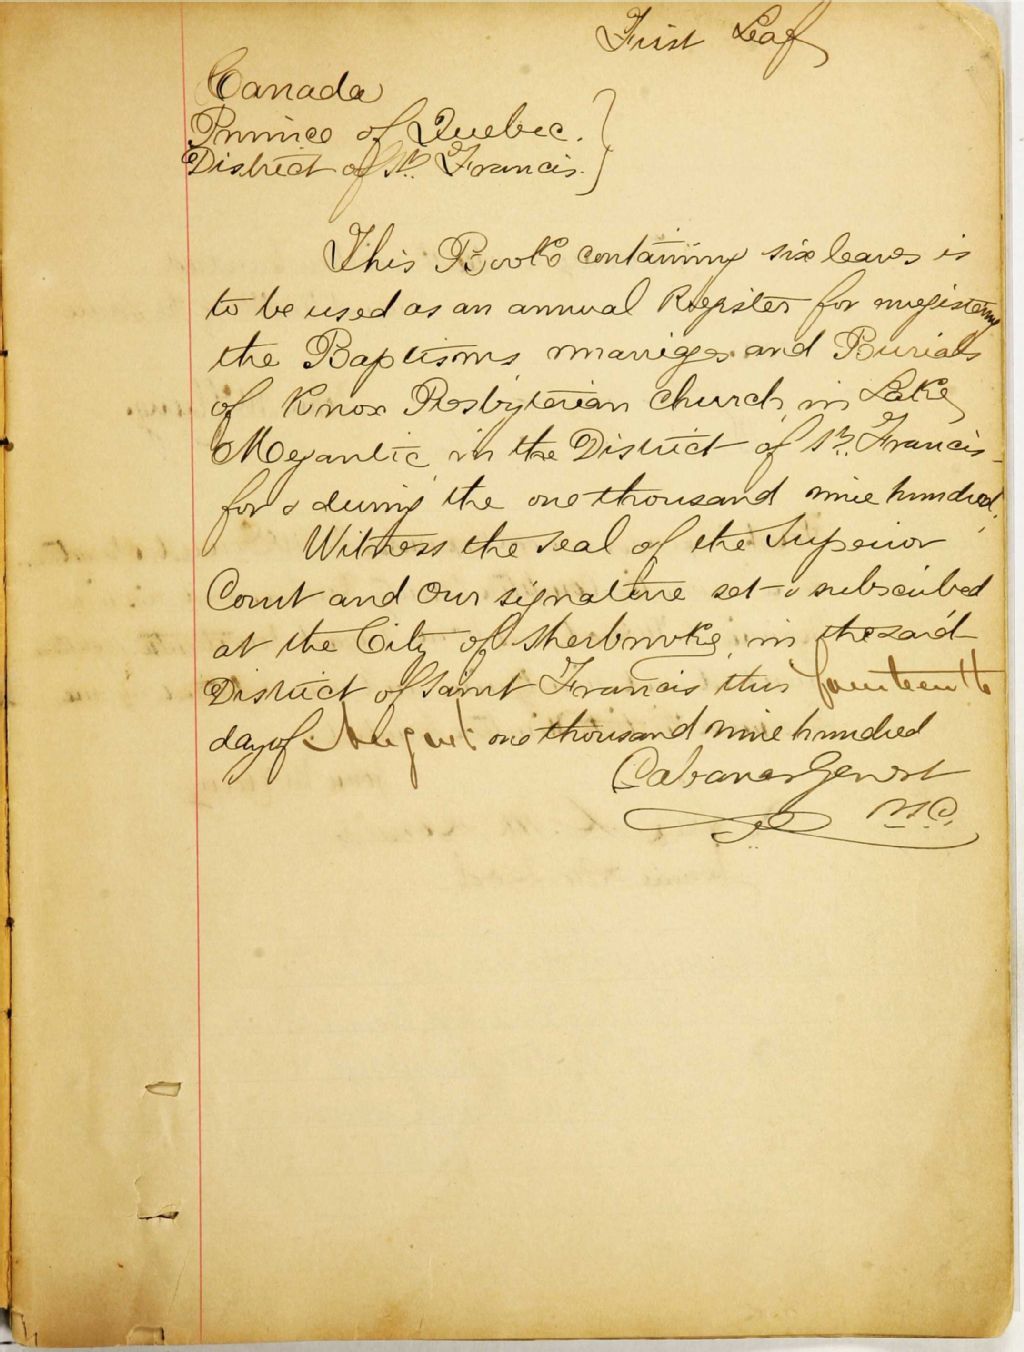 First Leaf
Canada
Province of Quebec.
District of St. Francis.
This Book containing six leaves is
to be used as an annual Register for registering
the Baptisms, marriages and Burials
of Knox Presbyterian church in Lake
Megantic in the District of St. Francis
for & during the one thousand nine hundred.
Witness the seal of the Superior
Court and Our signature set & subscribed
at the City of Sherbrooke, in the said
District of Saint Francis this fourteenth
day of August one thousand nine hundred
Cabana & Genest